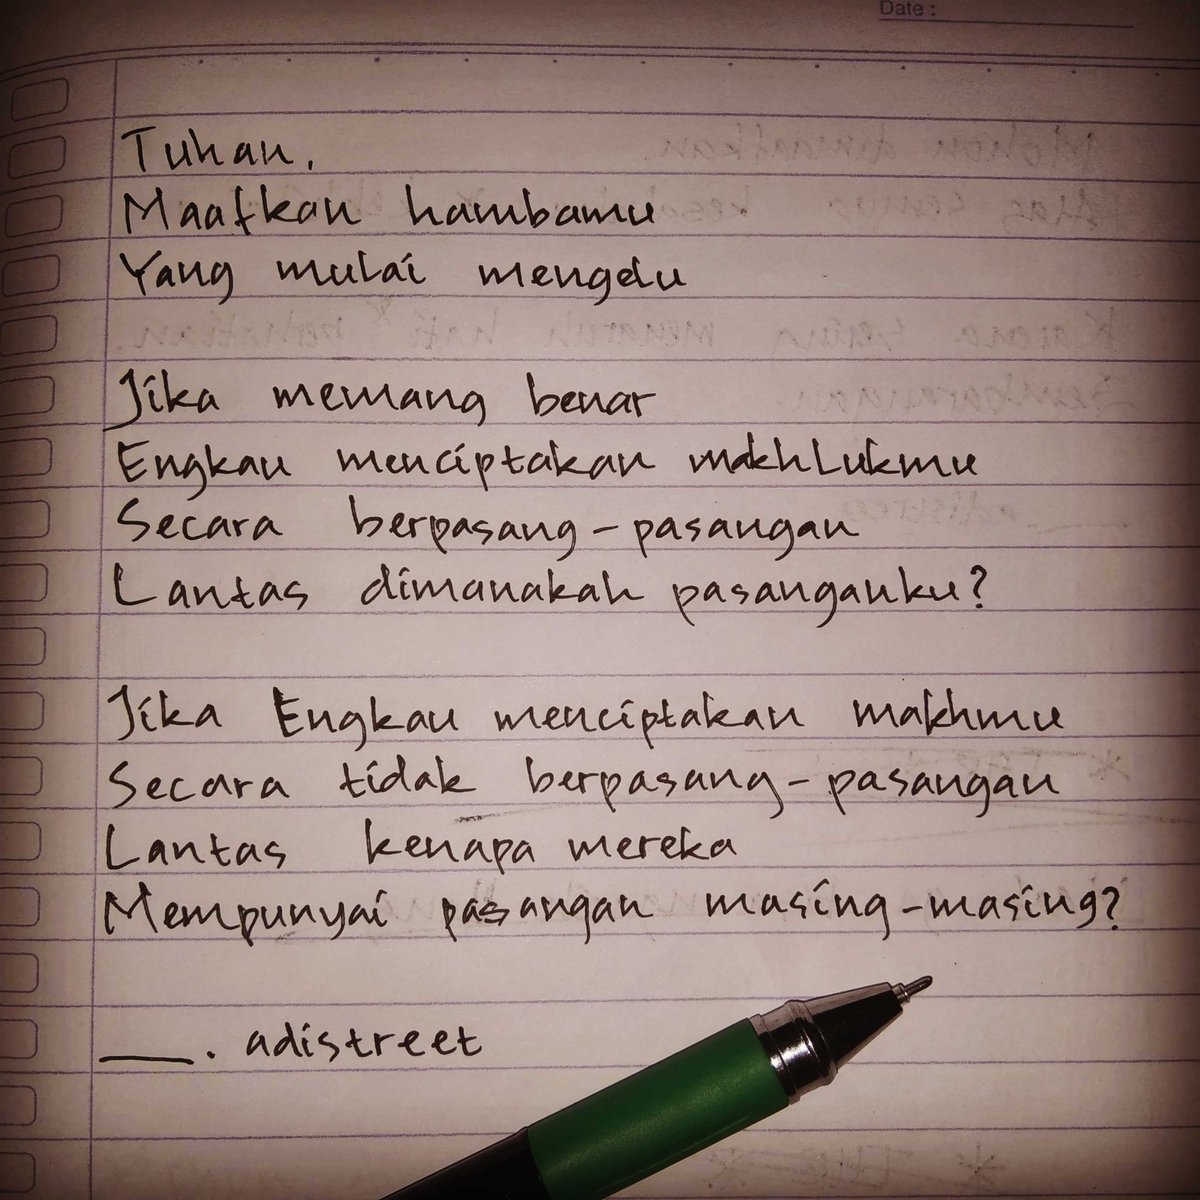 Date :
Tuhan,
Maafkan hambamu
Yang mulai mengelu
Jika memang benar
Engkau menciptakan makhLukmu
Secara berpasang-pasangan
Lantas dimanakah pasanganku?
Jika Engkau menciptakan makhmu
Secara tidak berpasang-pasangan
Lantas kenapa mereka
Mempunyai pasangan masing-masing?
___. adistreet